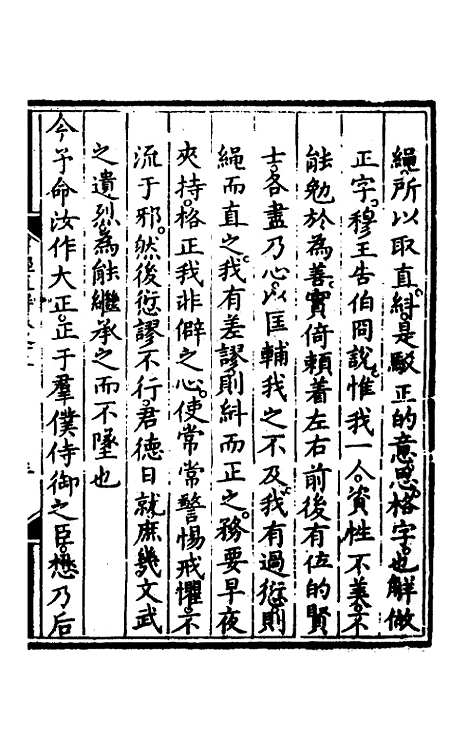 繩所以取直糾是駁正的意思格字也解做
正字穆王告伯冏說惟我一人資性不美不
能勉於為善實倚頼着左右前後有位的賢
士各盡乃心以匡輔我之不及我有過愆則
繩而直之我有差謬則糾而正之務要早夜
夾持格正我非僻之心使常常警惕戒懼不
流于邪然後愆謬不行君德日就庶幾文武
之遺烈為能繼承之而不墜也
今予命汝作大正正于羣僕侍御之臣懋乃后